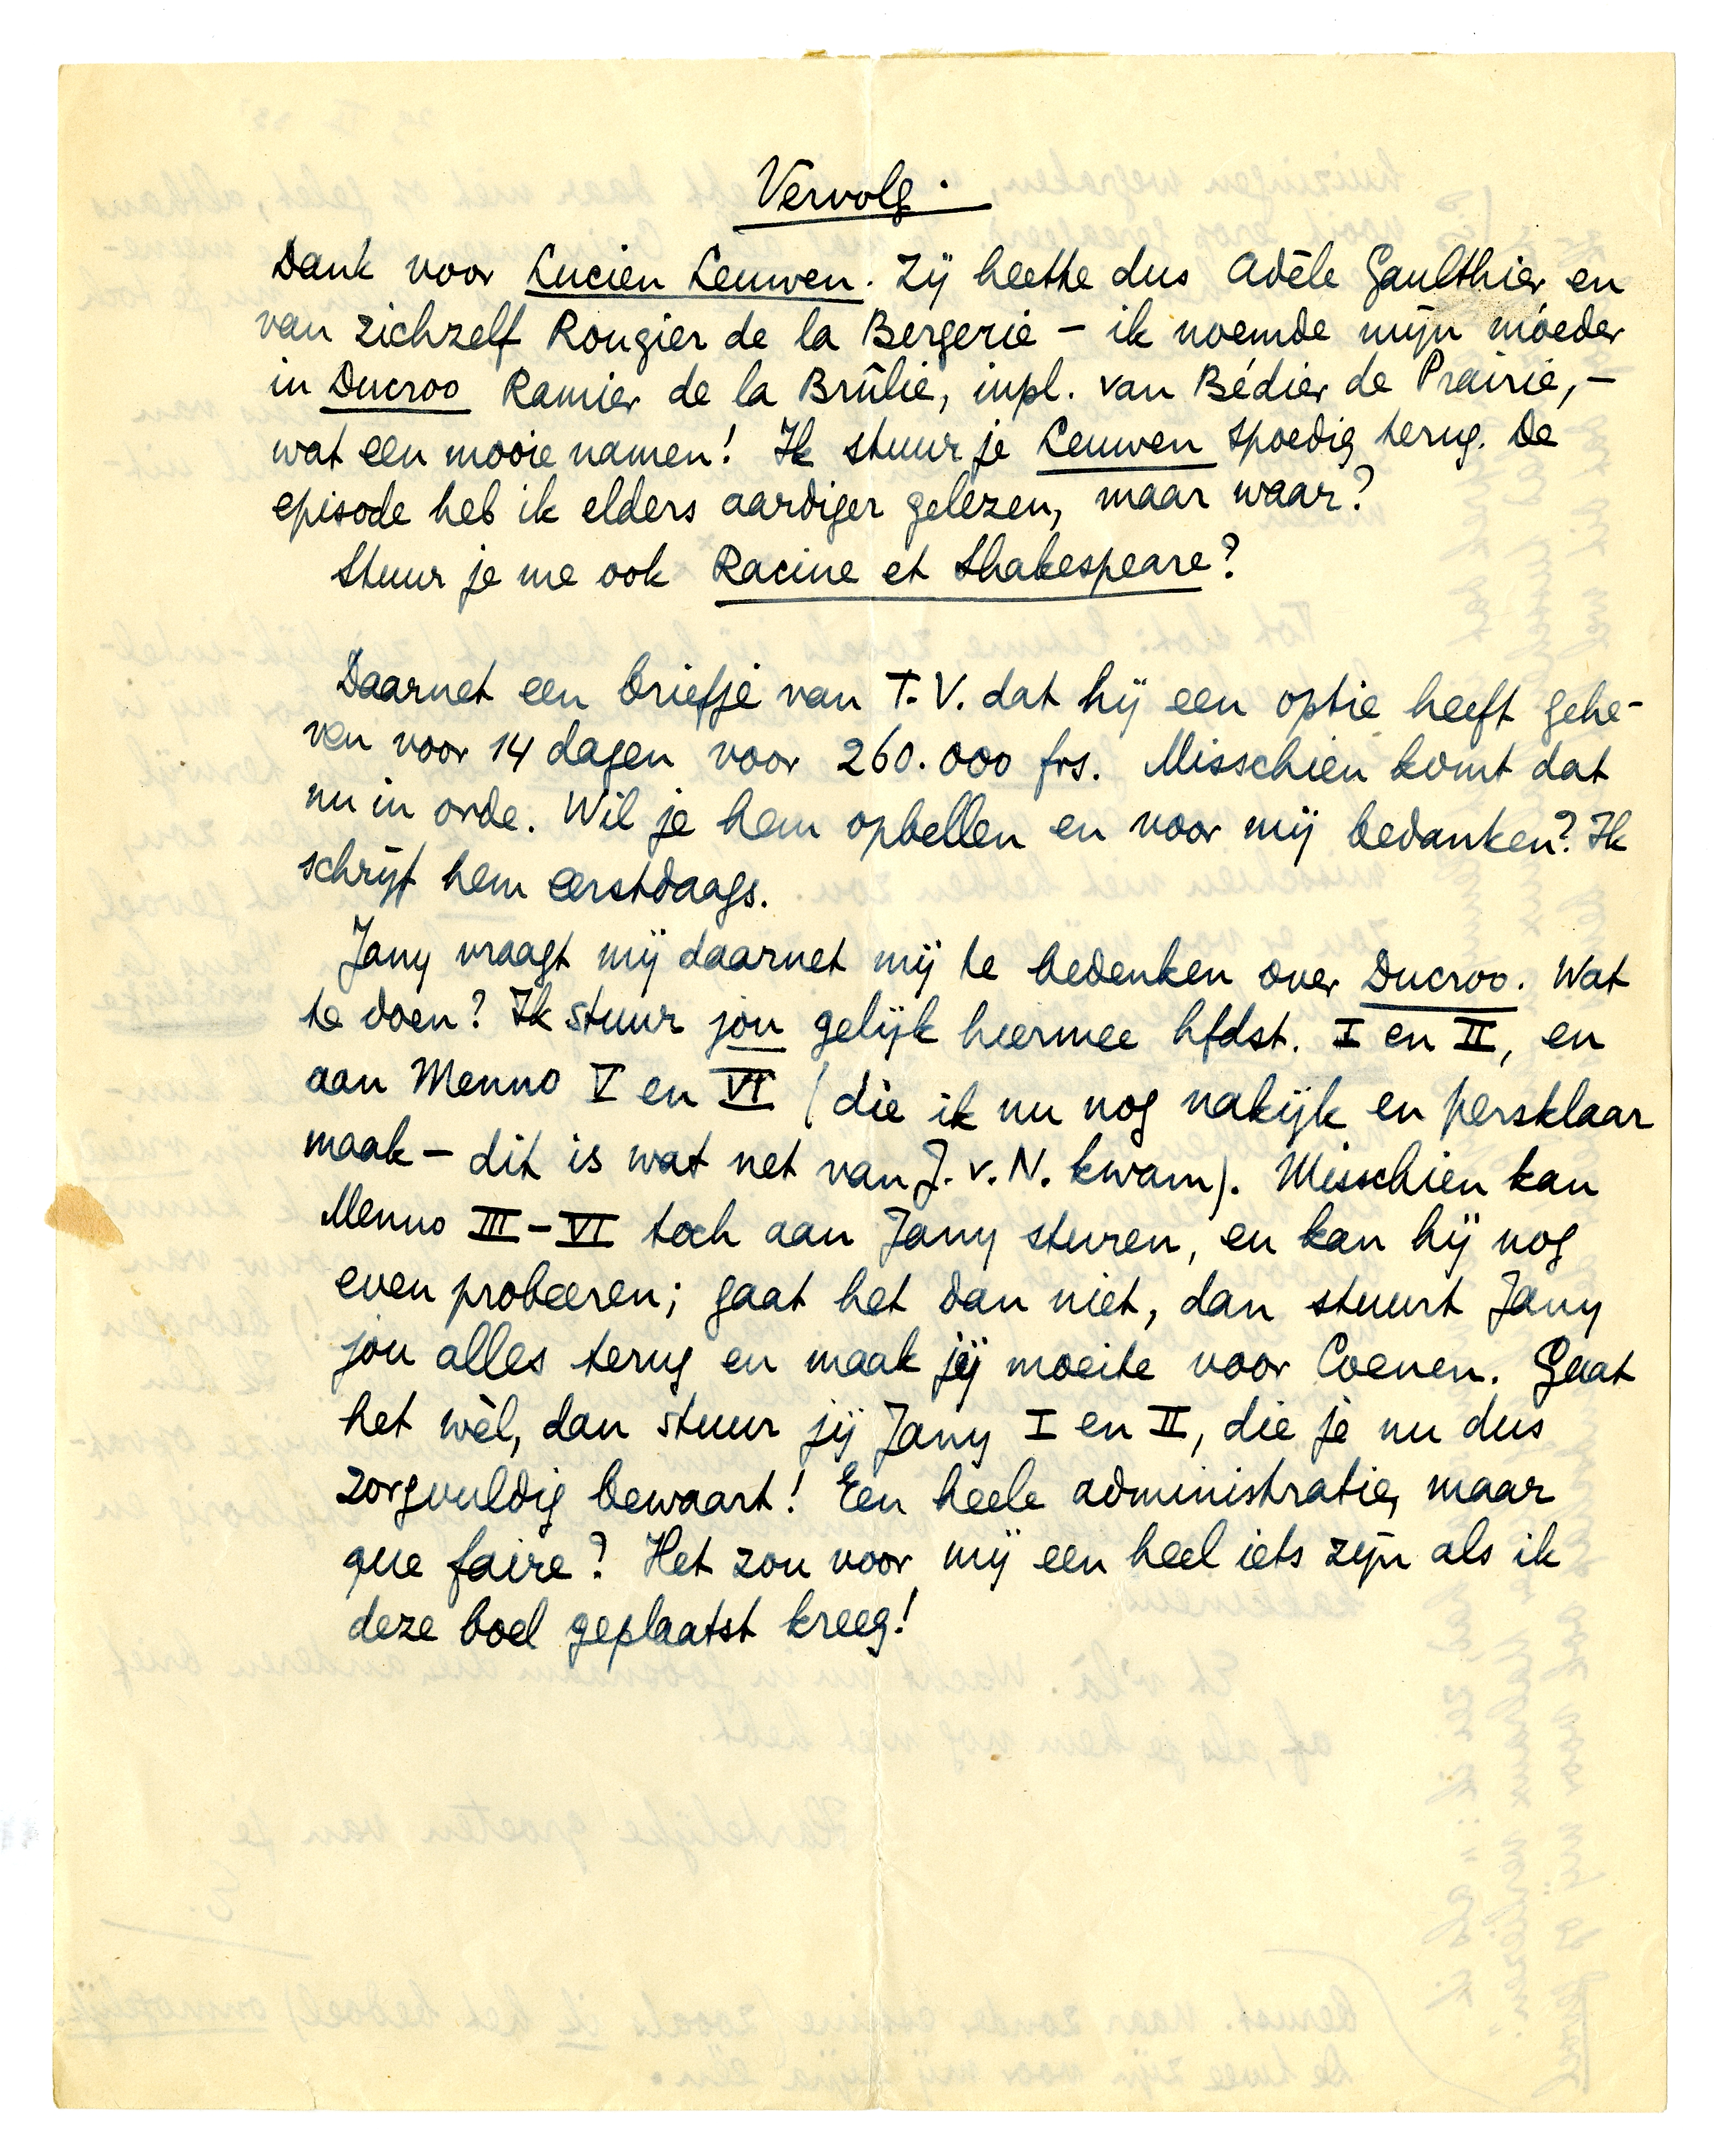 Vervolg.
Dank voor Lucien Leuwen. Zij heette dus Adèle Gaulthier en
van zichzelf Rougier de la Bergerie – ik noemde mijn moeder
in Ducroo Ramier de la Brûlie, inpl. van Bédier de Prairie, –
wat een mooie namen! Ik stuur je Leuwen spoedig terug. De
episode heb ik elders aardiger gelezen, maar waar?
Stuur je me ook Racine et Shakespeare?
Daarnet een briefje van T.V. dat hij een optie heeft gege-
ven voor 14 dagen voor 260.000 frs. Misschien komt dat
nu in orde. Wil je hem opbellen en voor mij bedanken? Ik
schrijf hem eerstdaags.
Jany vraagt mij daarnet mij te bedenken over Ducroo. Wat
te doen? Ik stuur jou gelijk hiermee hfdst. I en II, en
aan Menno V en VI (die ik nu nog nakijk en persklaar
maak – dit is wat net van J. v. N. kwam). Misschien kan
Menno III – VI toch aan Jany sturen, en kan hij nog
even probeeren; gaat het dan niet, dan stuurt Jany
jou alles terug en maak jij moeite voor Coenen. Gaat
het wèl, dan stuur jij Jany I en II, die je nu dus
zorgvuldig bewaart! Een heele administratie, maar
que faire? Het zou voor mij een heel iets zijn als ik
deze boel geplaatst kreeg!